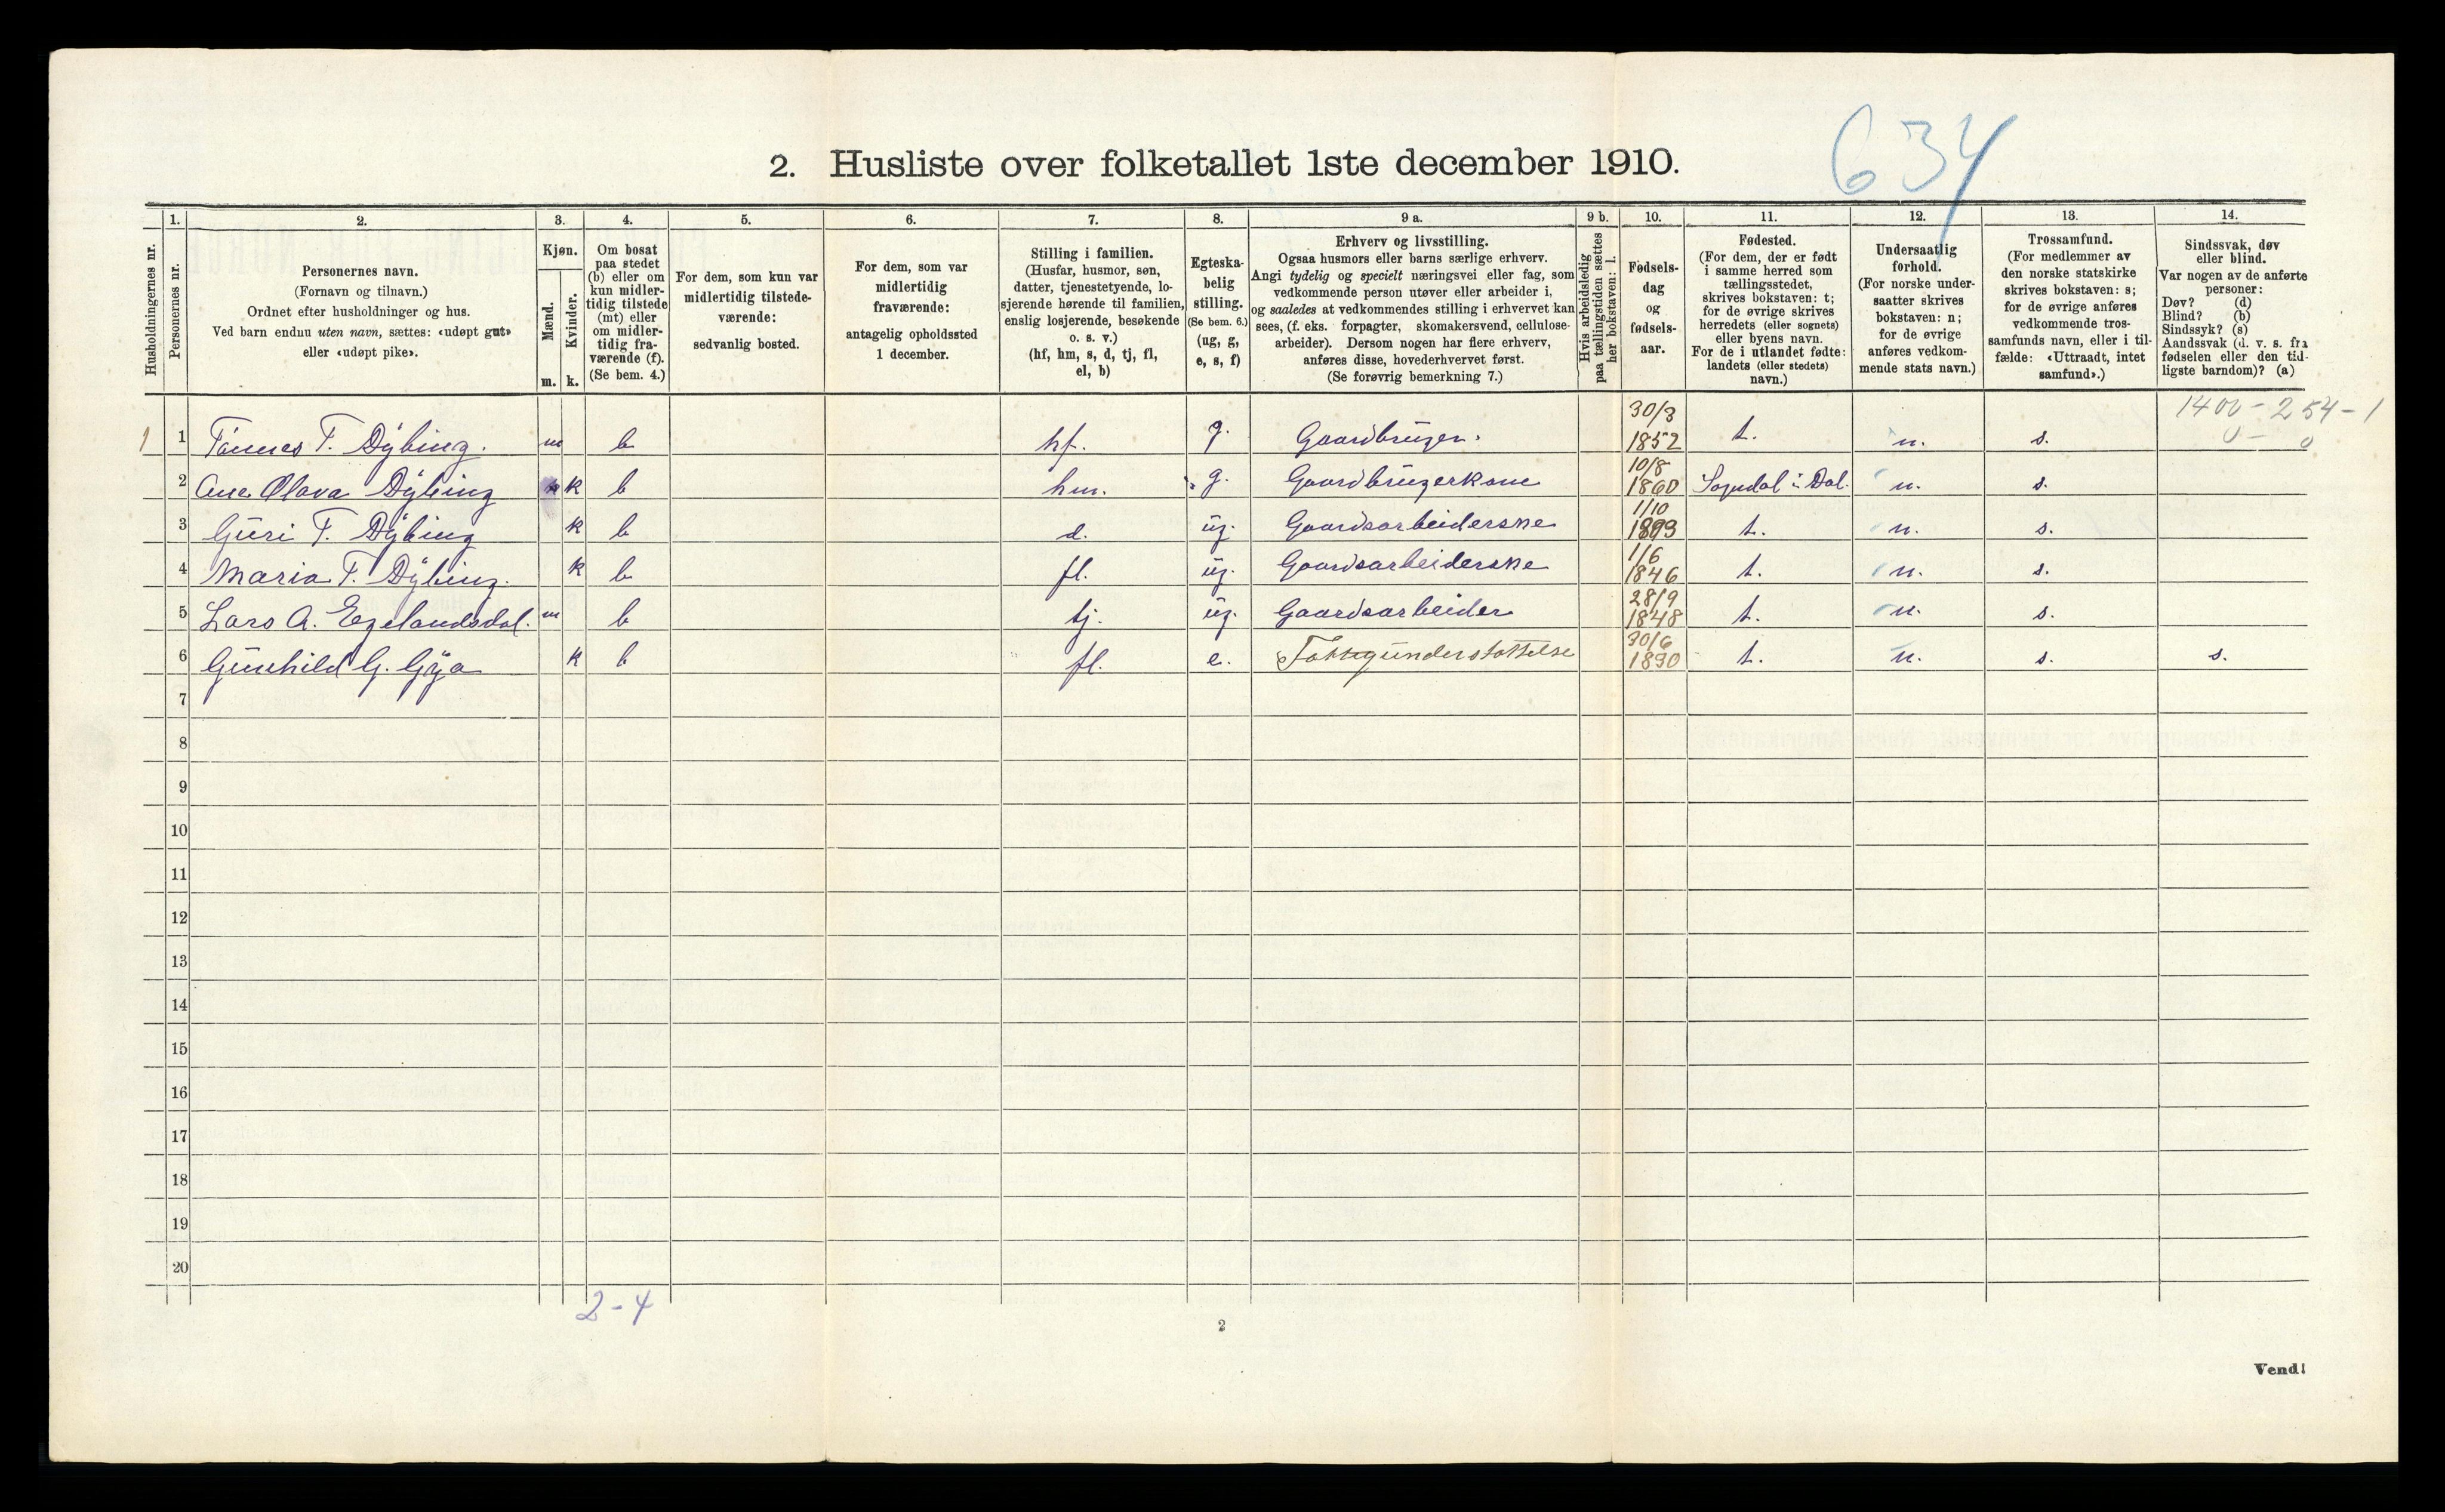 634
2. Husliste over folketallet 1ste december 1910.
Husholdningernes nr.
1.
Personernes nr.
2.
Personernes navn.
(Fornavn og tilnavn.)
Ordnet efter husholdninger og hus.
Ved barn endnu uten navn, sættes: «udøpt gut»
eller «udøpt pike».
3.
Kjøn.
Mænd.
Kvinder.
m. k.
4.
Om bosat
paa stedet
(b) eller om
kun midler-
tidig tilstede
(mt) eller
om midler-
tidig fra-
værende (f).
(Se bem. 4.)
5.
For dem, som kun var
midlertidig tilstede-
værende:
sedvanlig bosted.
6.
For dem, som var
midlertidig
fraværende:
antagelig opholdssted
1 december.
7.
Stilling i familien.
(Husfar, husmor, søn,
datter, tjenestetyende, lo-
sjerende hørende til familien,
enslig losjerende, besøkende
o. s. v.)
(hf, hm, s, d, tj, fl,
el, b)
8.
Egteska-
belig
stilling.
(Se bem. 6.)
(ug, g,
e, s, f)
9 a.
Erhverv og livsstilling.
Ogsaa husmors eller barns særlige erhverv.
Angi tydelig og specielt næringsvei eller fag, som
vedkommende person utøver eller arbeider i,
og saaledes at vedkommendes stilling i erhvervet kan
sees, (f. eks. forpagter, skomakersvend, cellulose-
arbeider). Dersom nogen har flere erhverv,
anføres disse, hovederhvervet først.
(Se forøvrig bemerkning 7.)
9 b.
Hvis arbeidsledig
paa tællingstiden sættes
her bokstaven: l.
10.
Fødsels-
dag
og
fødsels-
aar.
11.
Fødested.
(For dem, der er født
i samme herred som
tællingsstedet,
skrives bokstaven: t;
for de øvrige skrives
herredets (eller sognets)
eller byens navn.
For de i utlandet fødte:
landets (eller stedets)
navn.)
12.
Undersaatlig
forhold.
(For norske under-
saatter skrives
bokstaven: n;
for de øvrige
anføres vedkom-
mende stats navn.)
13.
Trossamfund.
(For medlemmer av
den norske statskirke
skrives bokstaven: s;
for de øvrige anføres
vedkommende tros-
samfunds navn, eller i til-
fælde: «Uttraadt, intet
samfund».)
14.
Sindssvak, døv
eller blind.
Var nogen av de anførte
personer:
Døv? (d)
Blind? (b)
Sindssyk? (s)
Aandssvak (d. v. s. fra
fødselen eller den tid-
ligste barndom)? (a)
1400-254-1
0-0
1 1 Tönnes T. Dybing. m b hf. g. Gaardbruger. 30/3 1852 t. n. s.
2 Ane Olava Dybing k b hm. g. Gaardbrugerkone 10/8 1860 Sogndal i Dal. n. s.
3 Guri T. Dybing k b d. ug. Gaardsarbeiderske 1/10 1893 t. n. s.
4 Maria T. Dybing. k b fl. ug. Gaardsarbeiderske 1/6 1846 t. n. s.
5 Lars A. Egelandsdal. m b tj. ug. Gaardsarbeider 28/9 1848 t. n. s.
6 Gunhild G. Gya k b fl. e. Fattigunderstøttelse 30/6 1830 t. n. s. s.
7
8
9
10
11
12
13
14
15
16
17
18
19
20
2-4
2
Vend!